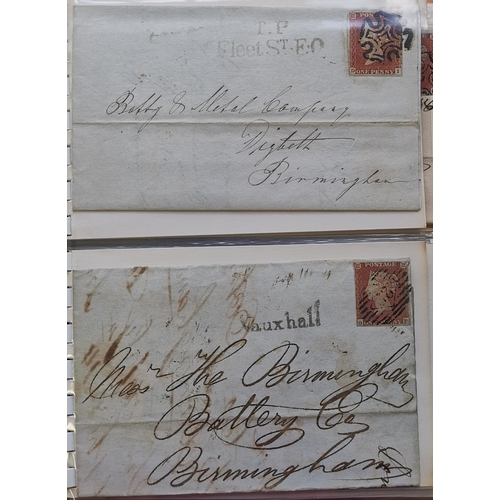 T.P
Fleet St. E.O
POSTAGE
ONE PENNY
Batty & Metal Company
Digbeth
Birmingham
POSTAGE
Vauxhall
Messrs The Birmingham
Battery Co
Birmingham